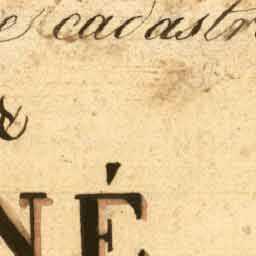 e cadastr
&
NÉ